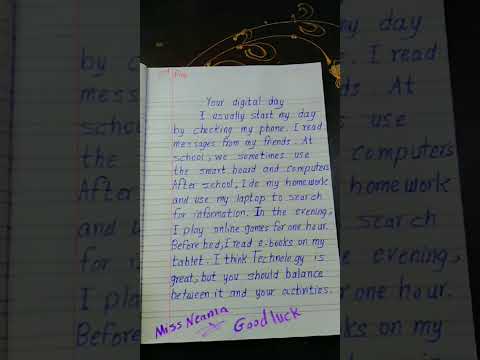 Your digital day
I usually start my day
by checking my phone. I read
messages from my friends. At
school, we sometimes use
the smart board and computers
After school, I do my homework
and use my laptop to search
for information. In the evening,
I play online games for one hour.
Before bed, I read e-books on my
tablet. I think Technology is
great, but you should balance
between it and your activities.
Miss Neama
Good luck